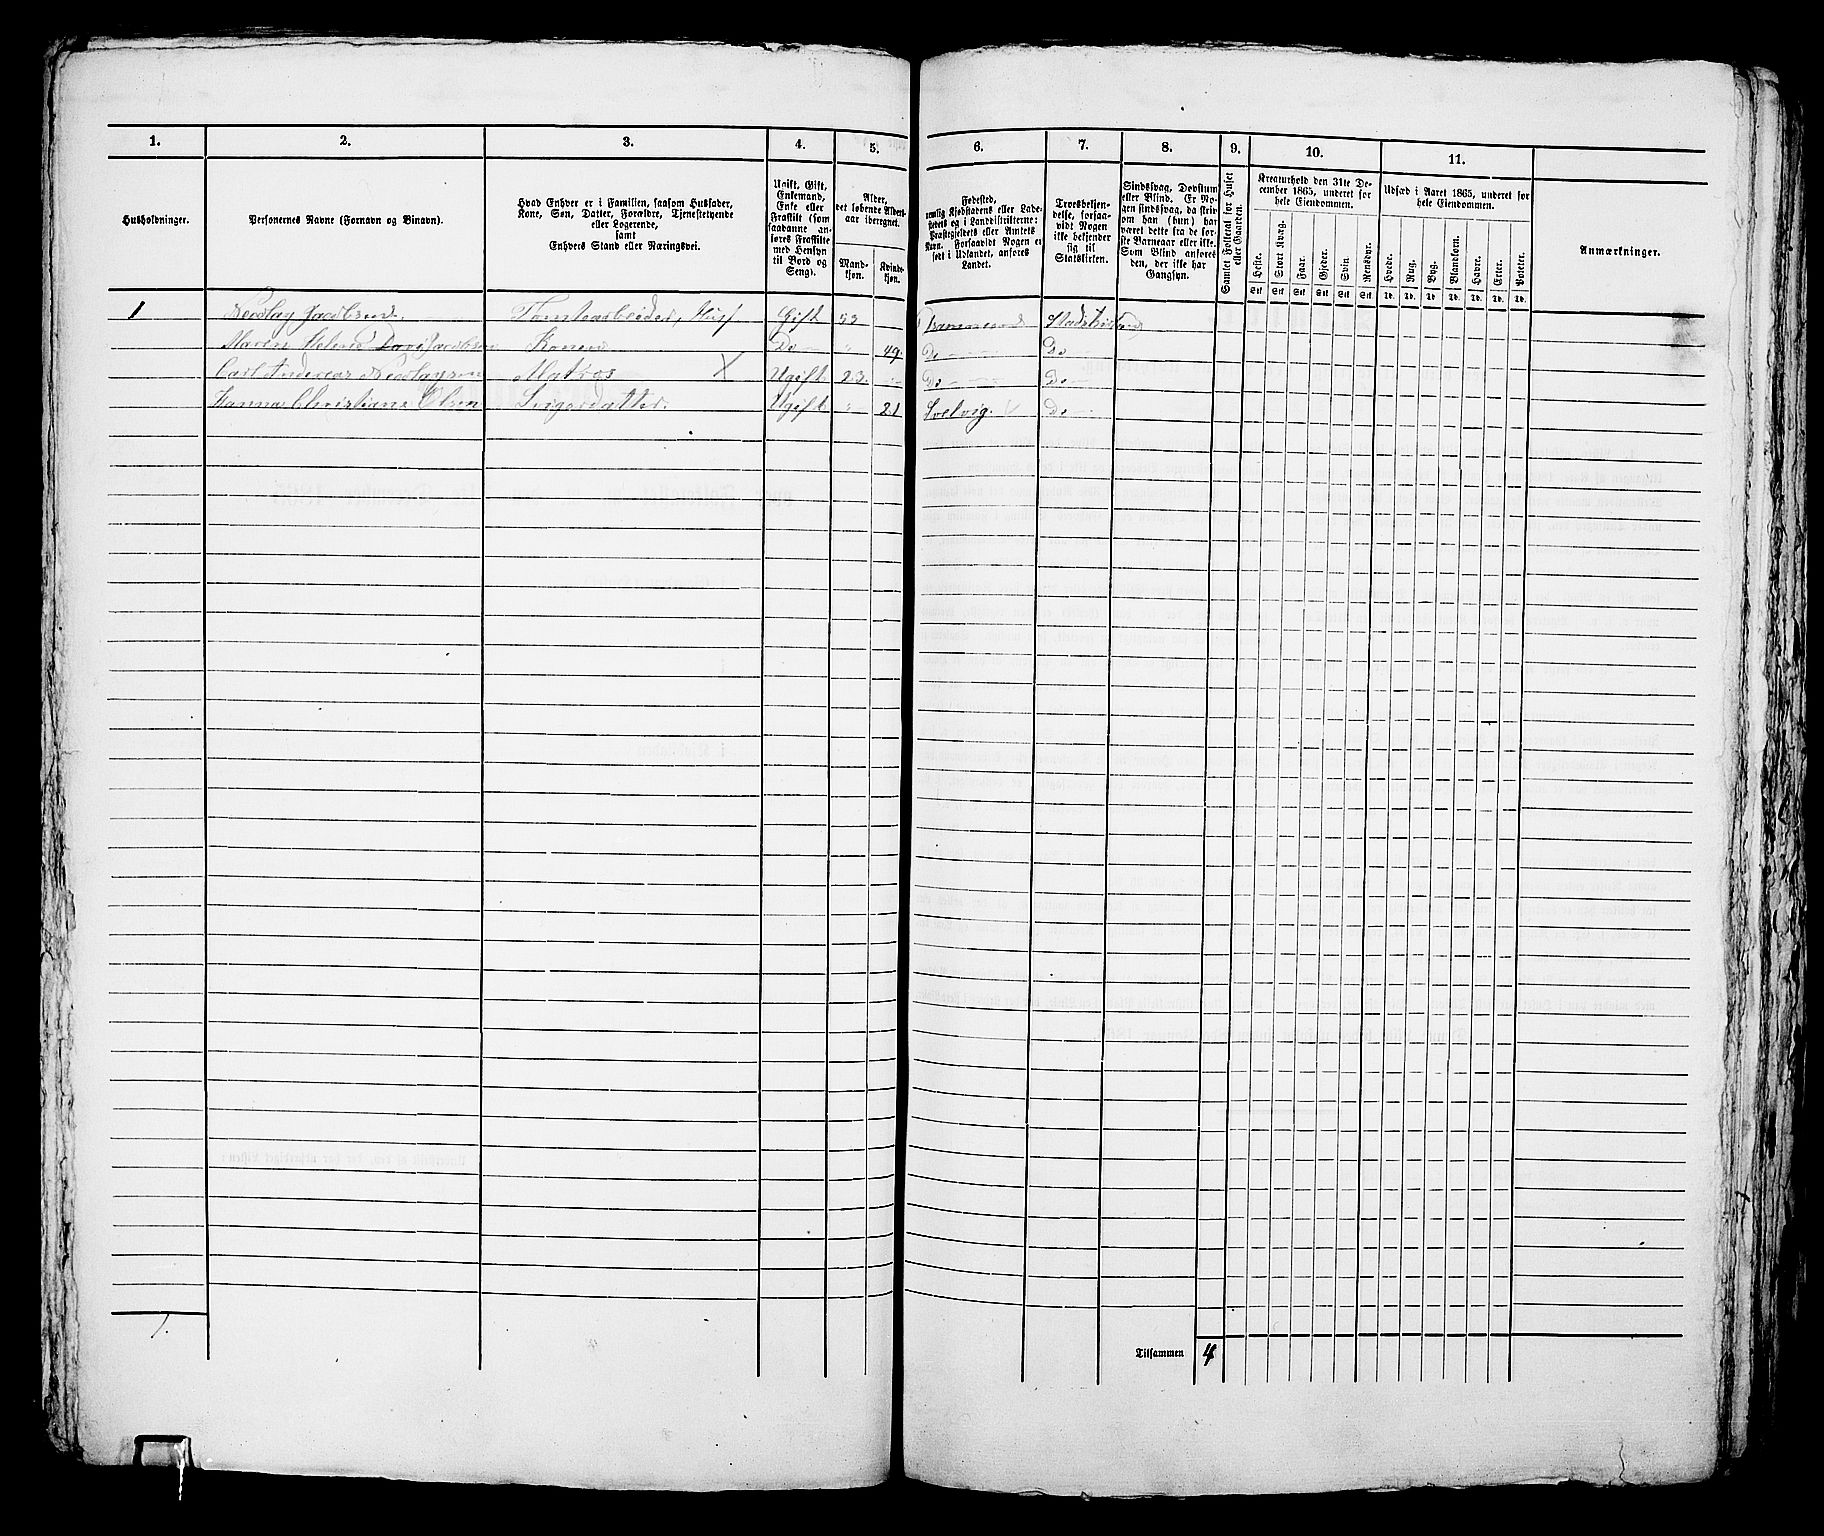 1. 2. 3. 4. 5. 6. 7. 8. 9. 10. 11.
Husholdninger.
Personernes Navne (Fornavn og Binavn).
Hvad Enhver er i Familien, saasom Husfader,
Kone, Søn, Datter, Forældre, Tjenestetyende
eller Logerende,
samt
Enhvers Stand eller Næringsvei.
Ugift, Gift,
Enkemand,
Enke eller
Fraskilt (som
saadanne an-
føres Fraskilte
med Hensyn
til Bord og
Seng).
Alder,
det løbende Alders-
aar iberegnet.
Mand-
kjøn.
Kvinde-
kjøn.
Fødested,
nemlig Kjøbstadens eller Lade-
stedets og i Landdistrikterne
Præstegjeldets eller Amtets
Navn. Forsaavidt Nogen er
født i Udlandet, anføres
Landet.
Troesbekjen-
delse, forsaa-
vidt Nogen
ikke bekjender
sig til
Statskirken.
Sindssvag, Døvstum
eller Blind. Er No-
gen sindssvag, da skriv
om han (hun) har
været dette fra de før-
ste Barneaar eller ikke.
Som Blind anføres
den, der ikke har
Gangsyn.
Samlet Folketal for Huset
eller Gaarden.
Kreaturhold den 31te De-
cember 1865, underet for
hele Eiendommen.
Heste. Stort Kvæg. Faar. Gjeder. Svin. Rensdyr.
Stk Stk Stk Stk Stk Stk
Udsæd i Aaret 1865, underet for
hele Eiendommen.
Hvede. Rug. Byg. Blandkorn. Havre. Erter. Poteter.
Td. Td. Td. Td. Td. Td. Td.
Anmærkninger.
1 Jacobsen. Tomtearbeider, Gift 53
Maren Helene Jacobsen Konen Do — " 49.
Do — Do
Carl Andreas Matros X Ugift 23. Do — Do —
Hanna Christiane Olsen Svigerdatter. Ugift " 21 Svelvig. Do —
1.
Tilsammen 4